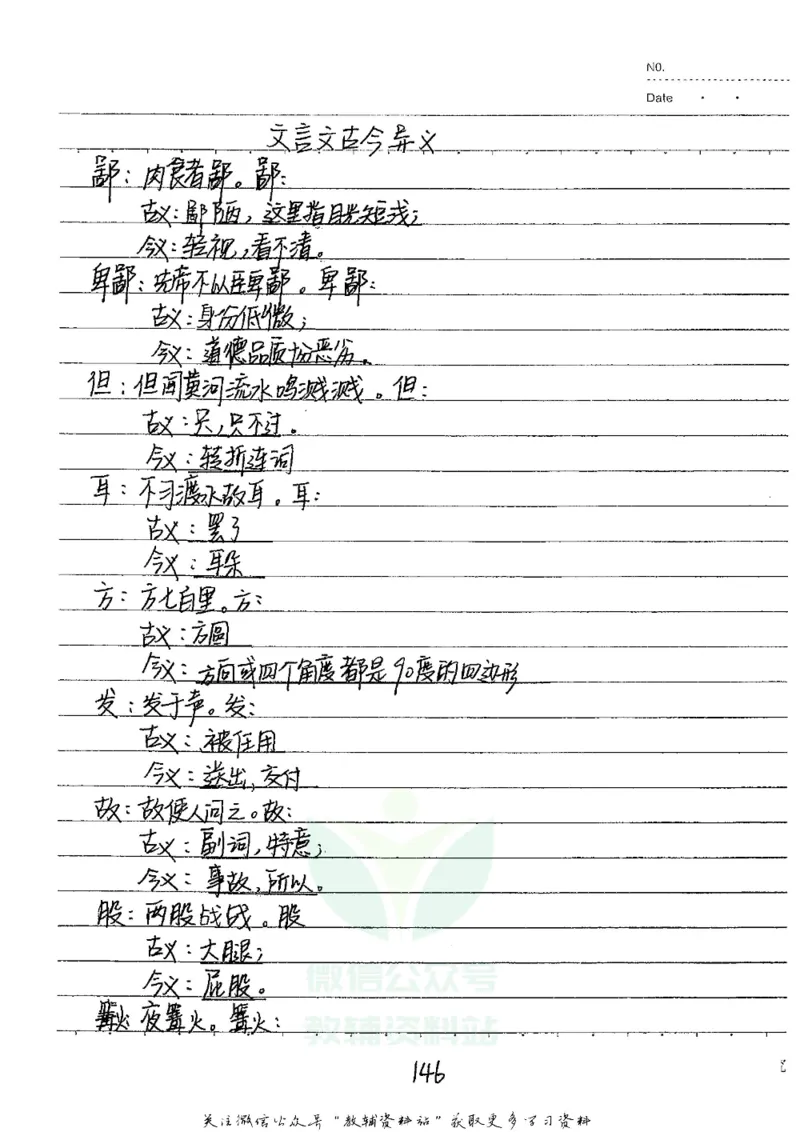 NO.
Date
文言文古今异义
鄙：肉食者鄙。鄙：
古义：鄙陋，这里指目光短浅；
今义：轻视，看不清。
卑鄙：先帝不以臣卑鄙。卑鄙：
古义：身份低微；
今义：道德品质恶劣。
但：但闻黄河流水鸣溅溅。但：
古义：只，只不过。
今义：转折连词
耳：不习渡水故耳。耳：
古义：罢了
今义：耳朵
方：方七百里。方：
古义：方圆
今义：方向或四个角度都是90度的四边形
发：发于声。发：
古义：被任用
今义：送出，交付
故：故使人问之。故：
古义：副词，特意；
今义：事故，所以。
股：两股战战。股
古义：大腿；
今义：屁股。
篝火 夜篝火。篝火：
微信公众号
教辅资料站
146
关注微信公众号“教辅资料站”获取更多学习资料